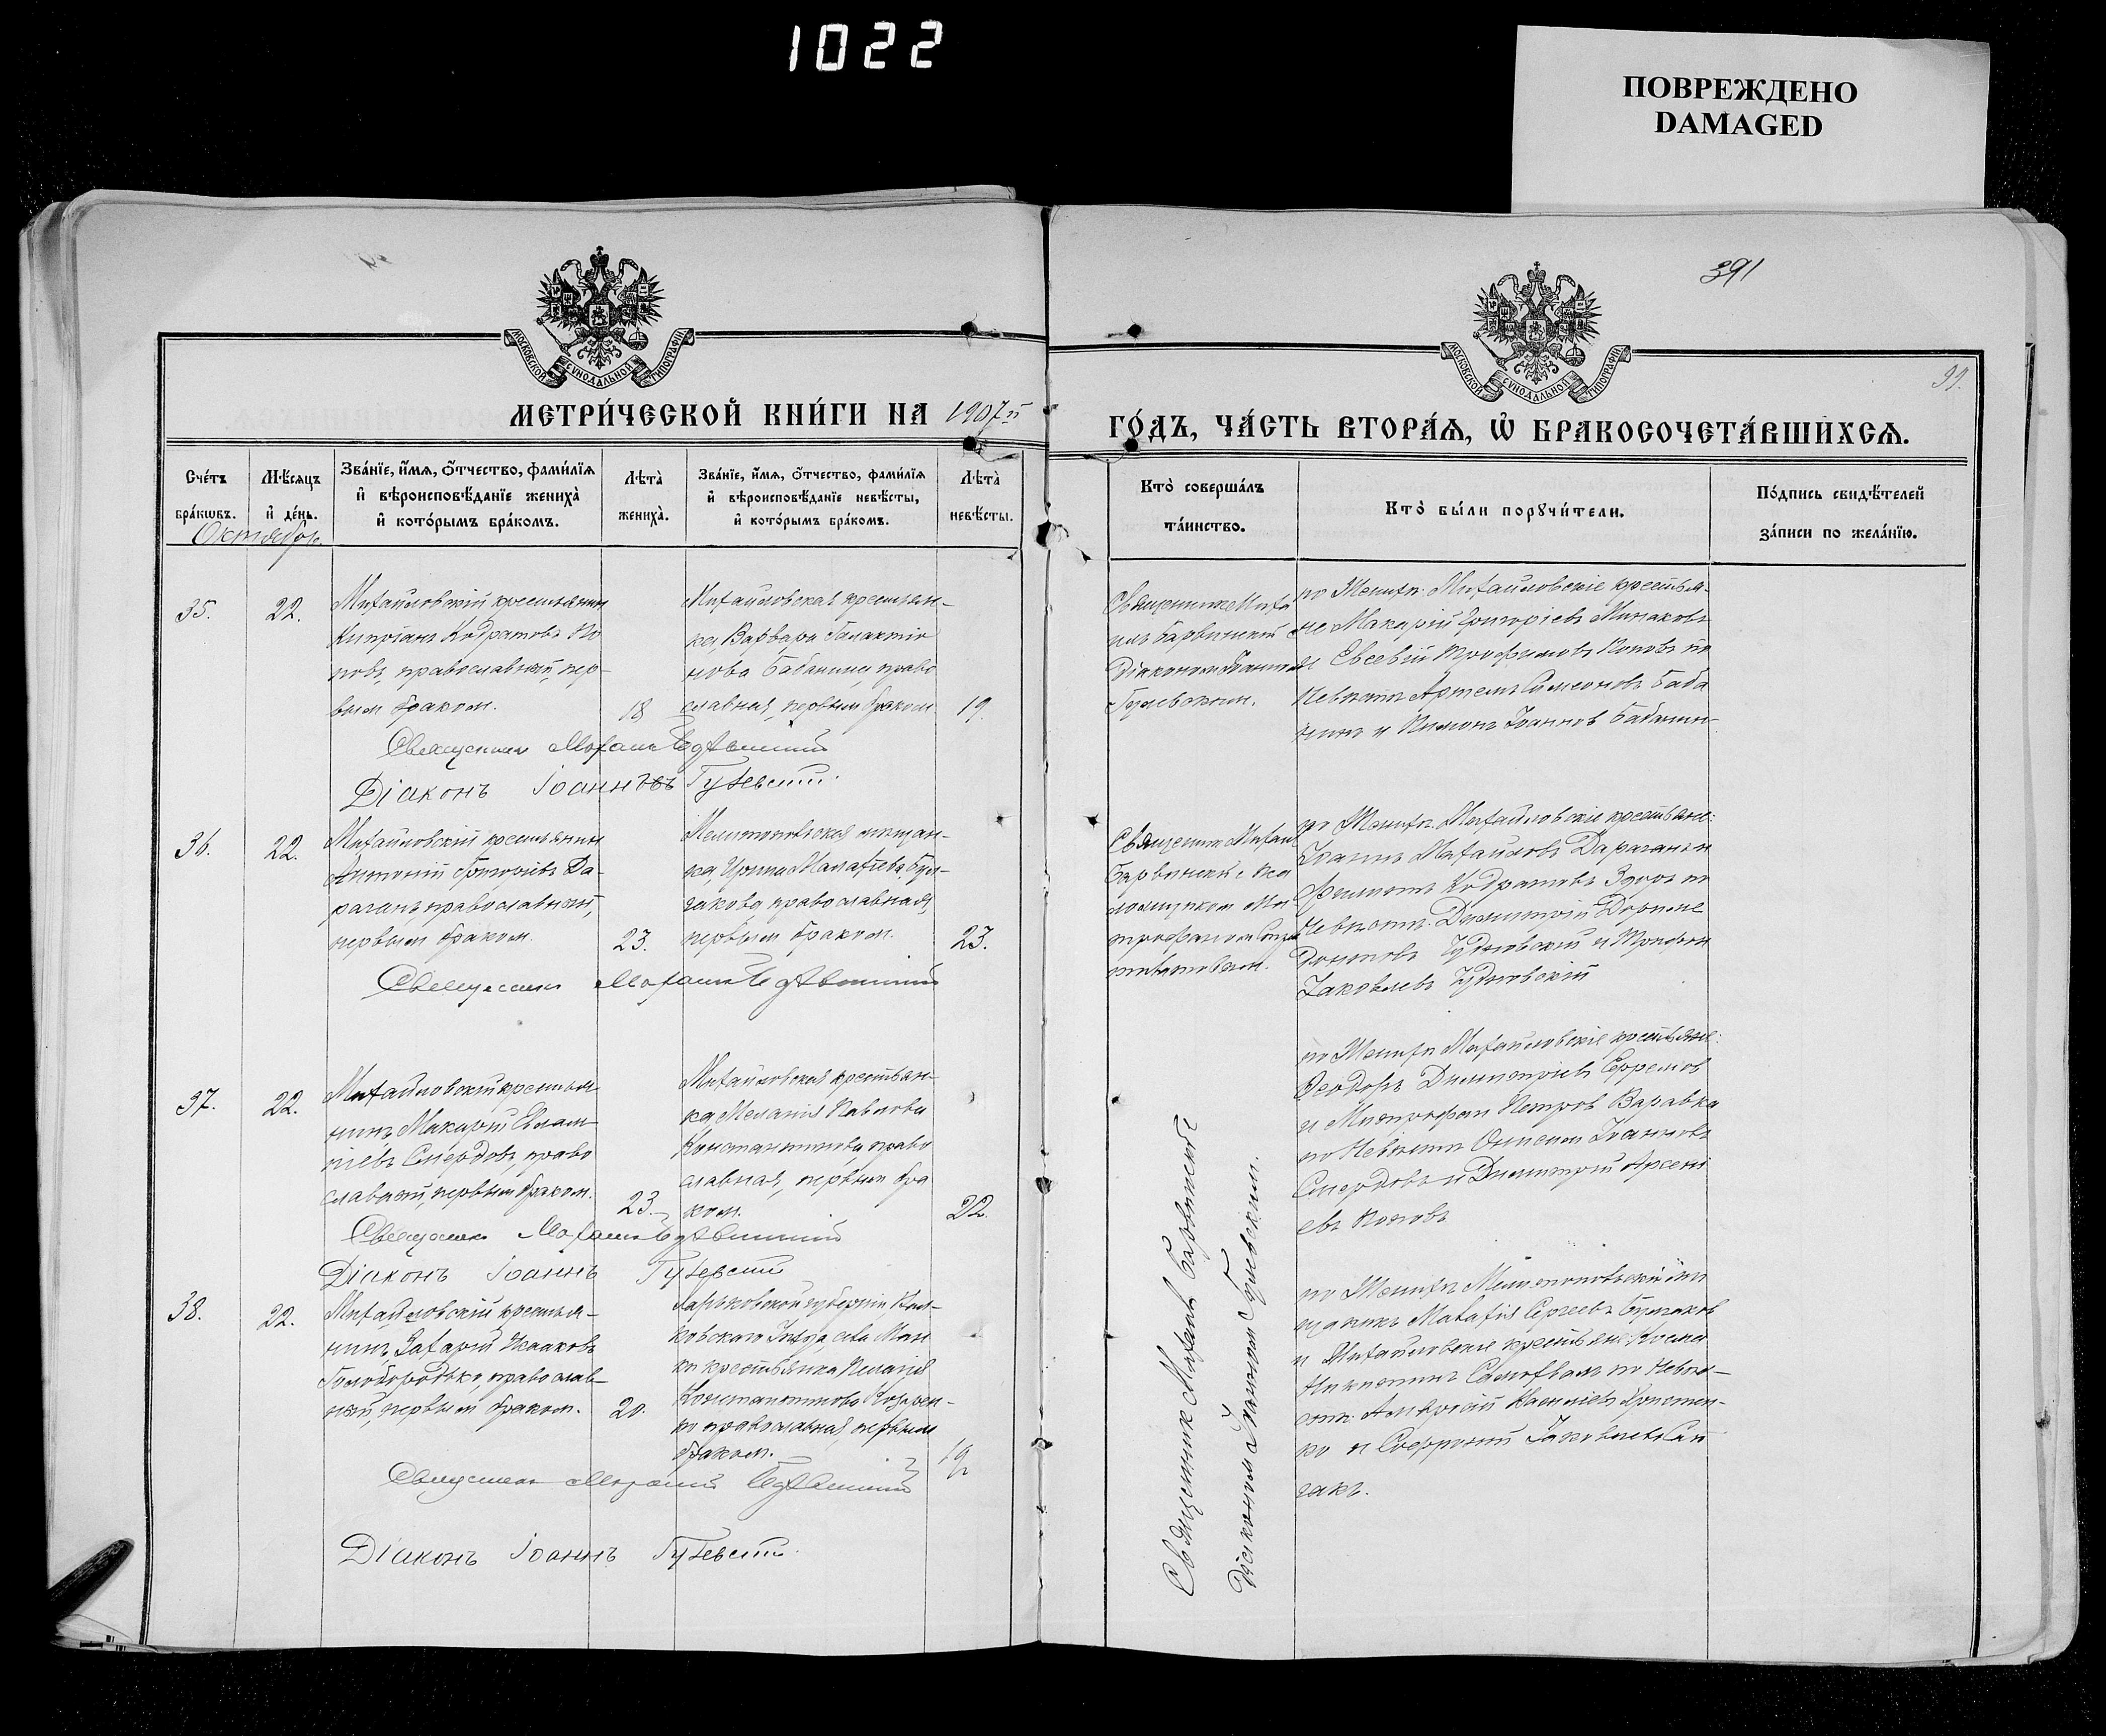 1022
ПОВРЕЖДЕНО
DAMAGED
391
91.
МОСКОВСКОЙ СУНОДАЛЬНОЙ ТИПОГРАФІИ
МОСКОВСКОЙ СУНОДАЛЬНОЙ ТИПОГРАФІИ
МЕТРИ́ЧЕСКОЙ КНИ́ГИ НА 1907й
ГО́ДЪ, ЧА́СТЬ ВТОРА́Ѧ, Ѡ҆ БРАКОСОЧЕТА́ВШИХСѦ.
Сче́тъ
бра́кѡвъ.
Мѣ́сѧцъ
и҆ де́нь.
Зва́нїе, и҆́мѧ, ѻ҆́тчество, фами́лїѧ
и҆ вѣроисповѣ́данїе жениха̀
и҆ кото́рымъ бра́комъ.
Лѣ́та̀
жениха̀.
Зва́нїе, и҆́мѧ, ѻ҆́тчество, фами́лїѧ
и҆ вѣроисповѣ́данїе невѣ́сты,
и҆ кото́рымъ бра́комъ.
Лѣ́та̀
невѣ́сты.
Кто̀ соверша́лъ
та́инство.
Кто̀ бы́ли порꙋчи́тели.
По́дпись свидѣ́телей
за́писи по жела́нїю.
Октябрь
35.
22.
Михайловскій крестьянинъ
Кипріанъ Кодратовъ По
повъ, православный, пер-
вымъ бракомъ.
18
Михайловская крестьян-
ка, Варвара Галактіо
нова Бабанина, право
славная, первымъ бракомъ
19.
Священникъ Миха
илъ Барвинскій с
Діакономъ Іоанномъ
Гулевскимъ.
по Женихѣ: Михайловскіе крестья-
не Макарій Григоріевъ Минаковъ
и Евсевій Трофимовъ Поповъ по
Невѣстѣ Артемъ Симеоновъ Баба
нинъ и Пименъ Іоанновъ Бабанин
Священникъ
Діаконъ Іоаннъ
36.
22.
Михайловскій крестьянинъ
Антоній Григорьевъ Да-
раганъ, православный,
первымъ бракомъ.
23.
Мелитопольская мѣщан-
ка, Ирина Малахіева Бул-
гакова православная,
первымъ бракомъ.
23.
Священникъ Михаил
Барвинскій с Пса
ломщикомъ Ми-
трофаномъ
по Женихѣ: Михайловскіе крестьяне:
Іоаннъ Михайловъ Дараганъ и
Филиппъ Кодратовъ Здоръ по
Невѣстѣ: Димитрій Дориме
донтовъ Чудновскій и Трифон
Іаковлевъ Чудновскій
Священникъ
37.
22.
Михайловскій крестья
нинъ, Макарій Евлам-
піевъ Смердовъ, право
славный, первымъ бракомъ.
23.
Михайловская крестьян-
ка, Меланія Павлова
Константинова, право
славная, первымъ бра
комъ.
22.
по Женихѣ Михайловскіе крестьяне:
Ѳеодоръ Димитріевъ Ефремовъ
и Митрофанъ Петровъ Варавка
по Невѣстѣ Онисимъ Іоанновъ
Смердовъ и Димитрій Арсені
евъ Поповъ
Священникъ
Діаконъ Іоаннъ
38.
22.
Михайловскій крестья-
нинъ, Захарій Исааковъ
Голобородько, православ-
ный, первымъ бракомъ.
20.
Харьковской губерніи Вал-
ковскаго Уѣзда, села
крестьянка Пелагія
Константинова
православная, первымъ
бракомъ.
19
Священникъ Михаилъ Барвинскій с
Діакономъ Іоанномъ Гулевскимъ.
по Женихѣ Мелитопольскій мѣ
щанинъ Малахія Сергеевъ Булгаковъ
и Михайловскіе крестьяне: Косма
по Невѣ-
стѣ:
и Софроній Іаковлевъ
Священникъ
Діаконъ Іоаннъ